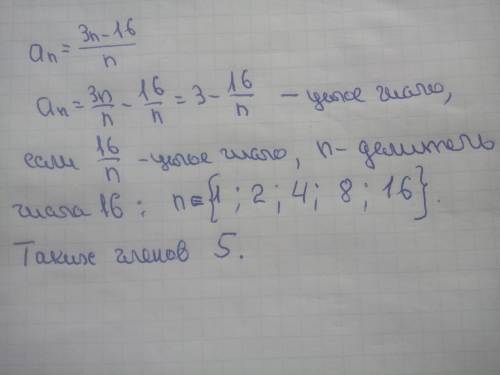 aₙ = (3n-16)/n
aₙ = 3n/n - 16/n = 3 - 16/n - целое число,
если 16/n - целое число, n - делитель
числа 16: n = {1; 2; 4; 8; 16}.
Таких членов 5.